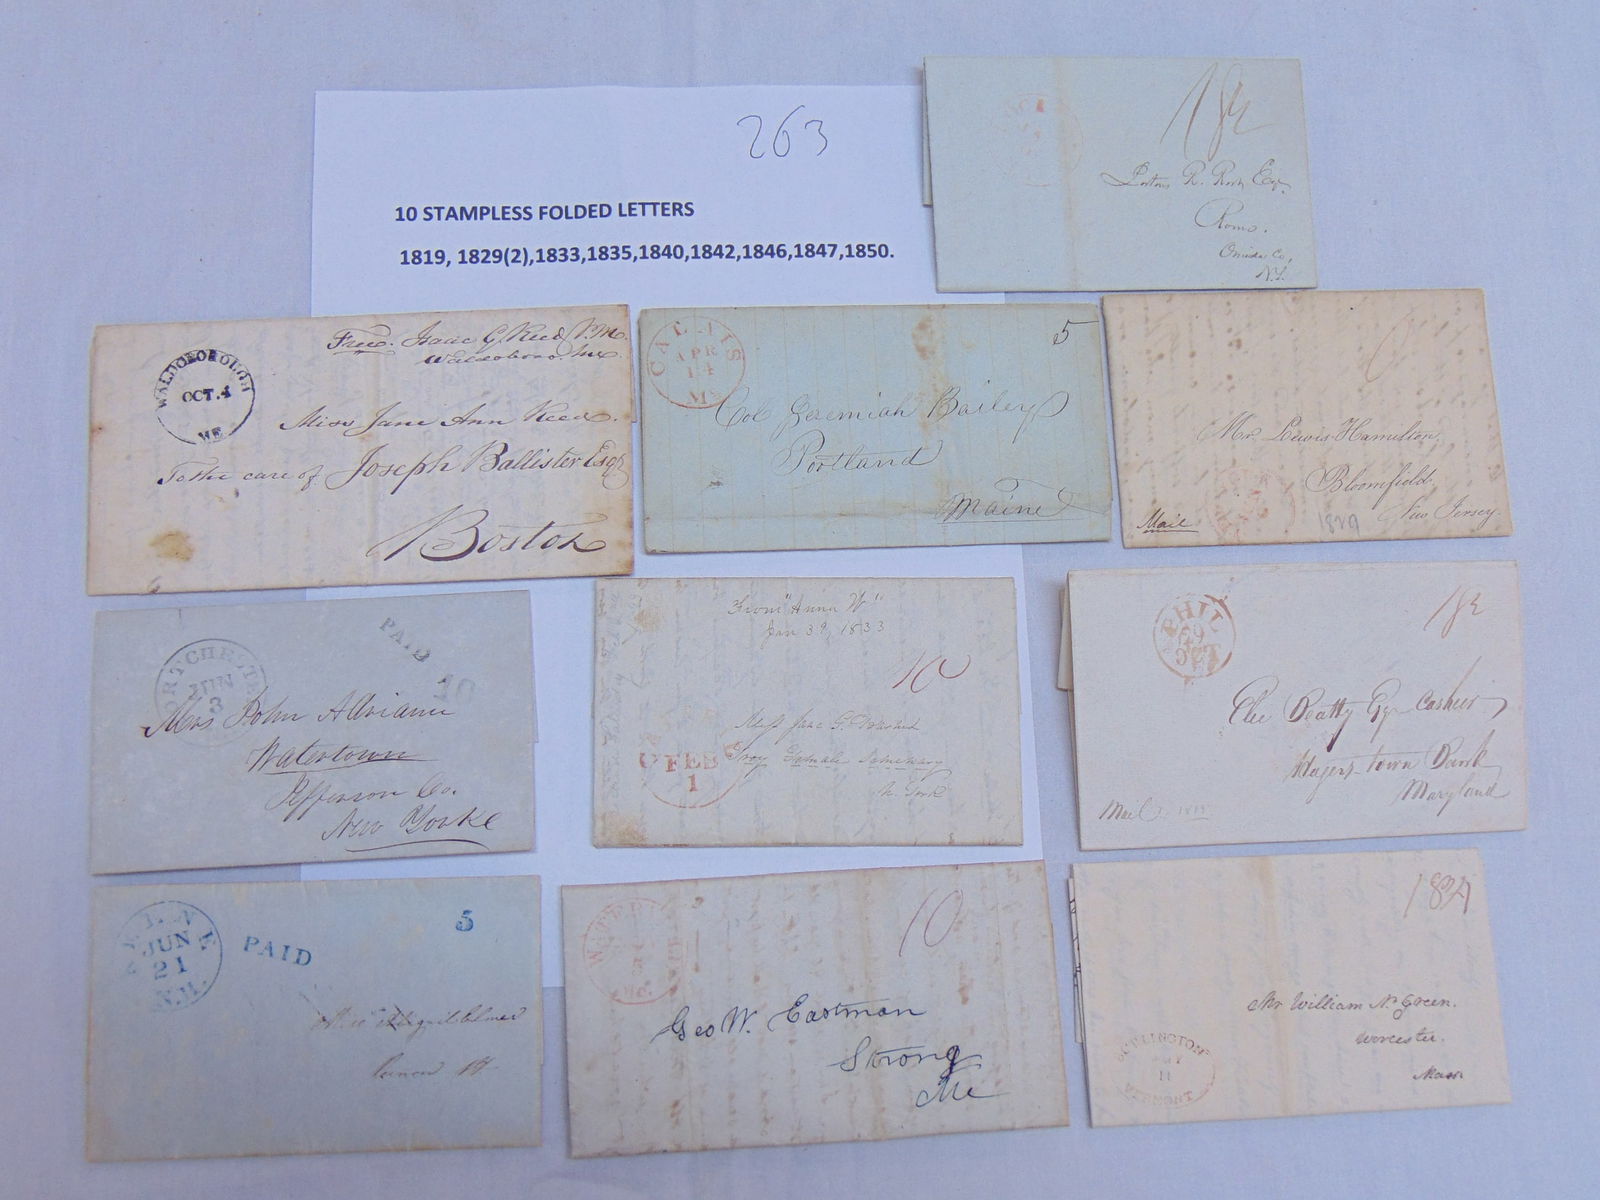 263
10 STAMPLESS FOLDED LETTERS
1819, 1829(2),1833,1835,1840,1842,1846,1847,1850.
18¾
R. Esqr.
Rome.
Oneida Co,
N.Y.
WALDOBOROUGH
OCT. 4
ME
Free. Isaac G. Reed P.M.
Waldoboro. Me.
Miss Jane Ann Reed.
To the care of Joseph Ballister Esqr
Boston
CALAIS
APR
14
Me
5
Col Jeremiah Bailey
Portland
Maine
Mr. Lewis Hamilton.
Bloomfield.
New Jersey.
Mail
1829
PORTCHESTER
JUN
3
PAID
10
Mrs John
Watertown
Jefferson Co.
New Yorke
From "Anna W"
Jan 39, 1833
10
FEB
1
Miss Jane G.
Troy Female Semenary
N. York
PHIL
29
OCT
18¾
Elie Beatty Esqr Cashier
Hagers-Town Bank
Maryland
Mail
JUN
21
N.H.
PAID
5
10
Geo W. Eastman
Strong
Me
18¾
BURLINGTON
11
VERMONT
Mr William N. Green.
Worcester.
Mass.